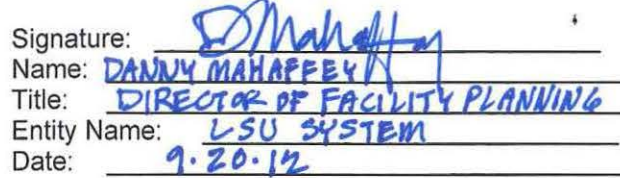 Signature: DMahaffey
Name: DANNY MAHAFFEY
Title: DIRECTOR OF FACILITY PLANNING
Entity Name: LSU SYSTEM
Date: 9.20.12